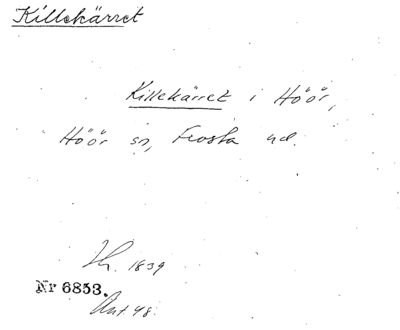 Killekärret
Killekärret i Höör,
Höör sn, Frosta hd.
1839
Nr 6853.
Ant. 48.